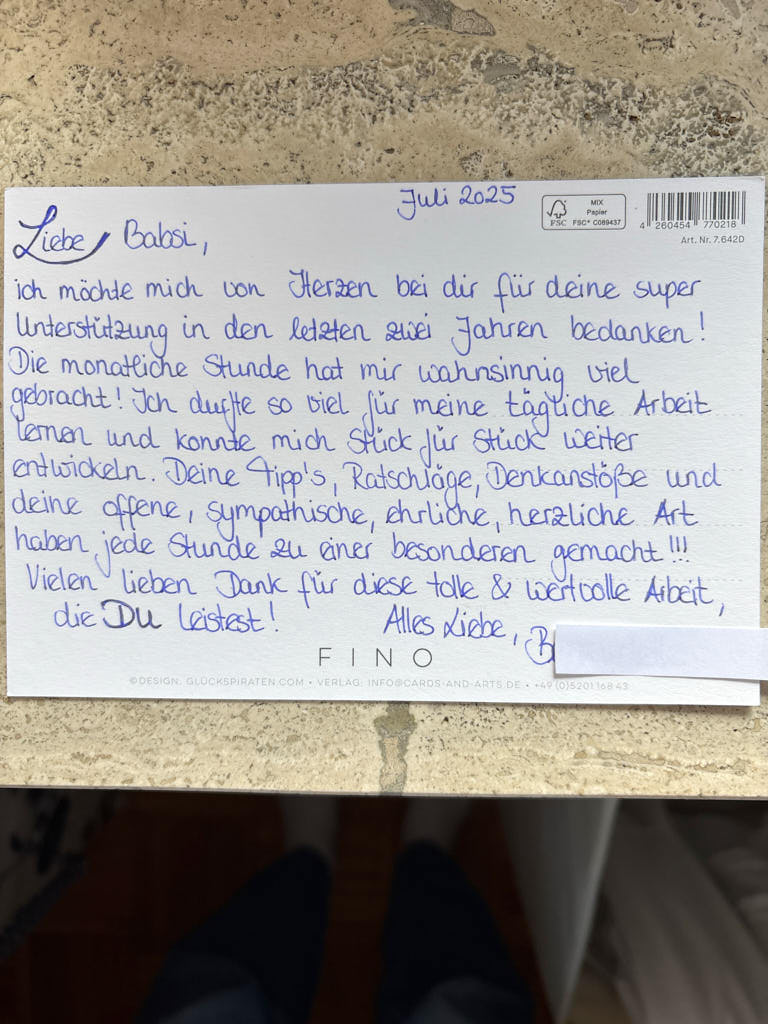 Juli 2025
FSC
MIX
Papier
FSC® C089437
4 260454 770218
Art. Nr. 7.642D
Liebe Babsi,
ich möchte mich von Herzen bei dir für deine super
Unterstützung in den letzten zwei Jahren bedanken!
Die monatliche Stunde hat mir wahnsinnig viel
gebracht! Ich durfte so viel für meine tägliche Arbeit
lernen und konnte mich Stück für Stück weiter
entwickeln. Deine Tipp's, Ratschläge, Denkanstöße und
deine offene, sympathische, ehrliche, herzliche Art
haben jede Stunde zu einer besonderen gemacht!!!
Vielen lieben Dank für diese tolle & wertvolle Arbeit,
die DU leistest! Alles Liebe, B
FINO
©DESIGN: GLÜCKSPIRATEN.COM • VERLAG: INFO@CARDS-AND-ARTS.DE • +49 (0)5201 168 43